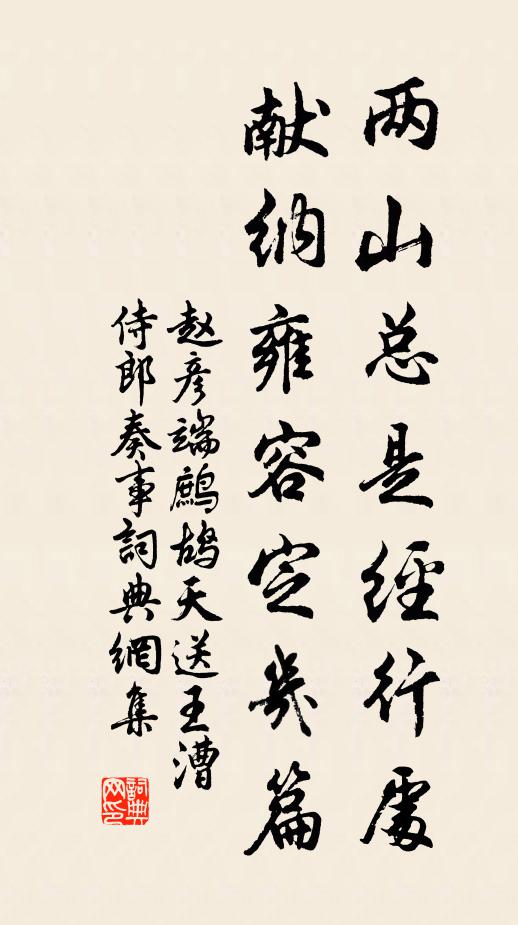 两山总是经行处
献纳雍容定几篇
赵彦端鹧鸪天送王漕
侍郎奏事詞典網集
詞典网印